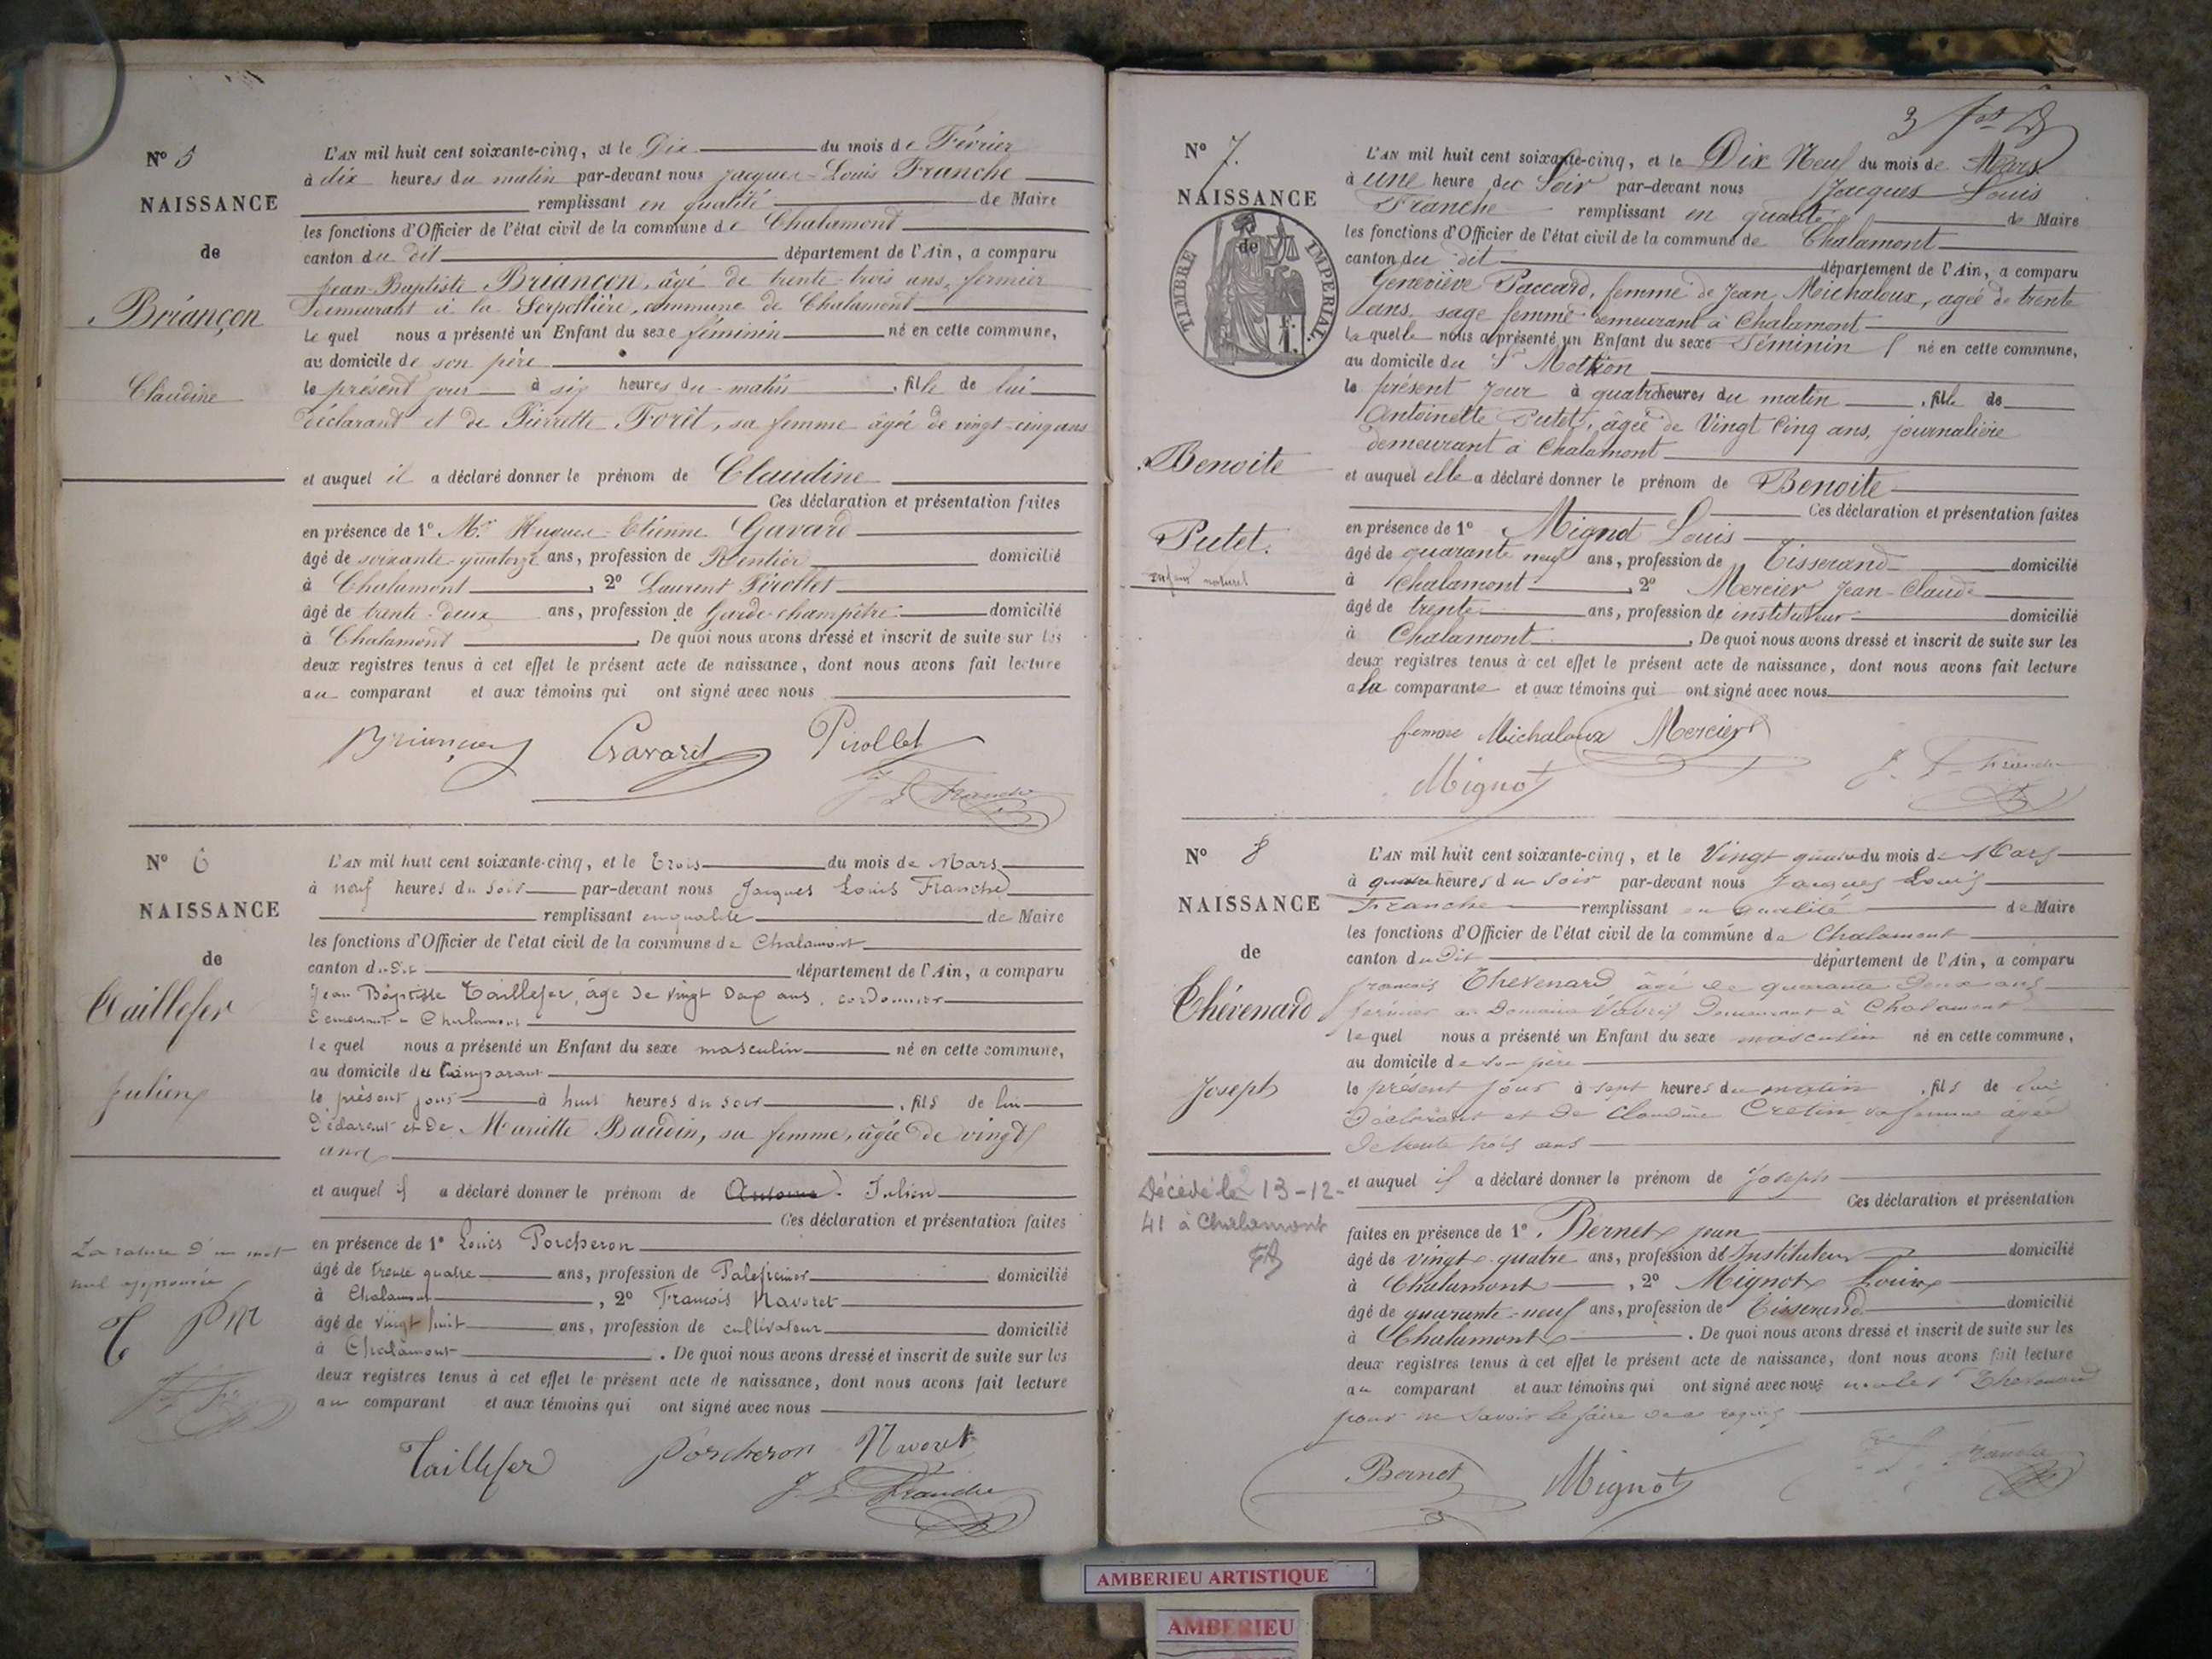 N° 5
NAISSANCE
de
Briançon
Claudine
L'AN mil huit cent soixante-cinq, et le Dix du mois de Février
à dix heures du matin par-devant nous Jacques-Louis Franche
remplissant en qualité de Maire
les fonctions d'Officier de l'état civil de la commune de Chalamont
canton du dit département de l'Ain, a comparu
Jean-Baptiste Briançon, âgé de trente-trois ans, fermier
Demeurant à la Serpollière, commune de Chalamont
le quel nous a présenté un Enfant du sexe féminin né en cette commune,
au domicile de son père
le présent jour à six heures du matin, fille de lui
déclarant et de Pierrette Forêt, sa femme âgée de vingt-cinq ans
et auquel il a déclaré donner le prénom de Claudine
Ces déclaration et présentation faites
en présence de 1° Mr. Hugues-Etienne Gavard
âgé de soixante-quatorze ans, profession de Rentier domicilié
à Chalamont, 2° Laurent Pirollet
âgé de trente-deux ans, profession de Garde-champêtre domicilié
à Chalamont. De quoi nous avons dressé et inscrit de suite sur les
deux registres tenus à cet effet le présent acte de naissance, dont nous avons fait lecture
au comparant et aux témoins qui ont signé avec nous
Briançon Gavard Pirollet
J. L. Franche
N° 6
NAISSANCE
de
Taillefer
Julien
La rature d'un mot
nul approuvée
L'AN mil huit cent soixante-cinq, et le Trois du mois de Mars
à neuf heures du soir par-devant nous Jacques Louis Franche
remplissant en qualité de Maire
les fonctions d'Officier de l'état civil de la commune de Chalamont
canton du dit département de l'Ain, a comparu
Jean Baptiste Taillefer, âgé de vingt Deux ans, cordonnier
Demeurant à Chalamont
le quel nous a présenté un Enfant du sexe masculin né en cette commune,
au domicile du Comparant
le présent jour à huit heures du soir, fils de lui
Déclarant et De Mariette Baudin, sa femme, âgée de vingt
ans
et auquel il a déclaré donner le prénom de Antoine Julien
Ces déclaration et présentation faites
en présence de 1° Louis Porcheron
âgé de trente quatre ans, profession de Palefrenier domicilié
à Chalamont, 2° François Navoret
âgé de vingt huit ans, profession de cultivateur domicilié
à Chalamont. De quoi nous avons dressé et inscrit de suite sur les
deux registres tenus à cet effet le présent acte de naissance, dont nous avons fait lecture
au comparant et aux témoins qui ont signé avec nous
Taillefer Porcheron Navoret
J. L. Franche
3
N° 7.
NAISSANCE
de
TIMBRE IMPÉRIAL
Benoite
Putet.
enfant naturel
L'AN mil huit cent soixante-cinq, et le Dix Neuf du mois de Mars
à une heure du Soir par-devant nous Jacques Louis
Franche remplissant en qualité de Maire
les fonctions d'Officier de l'état civil de la commune de Chalamont
canton du dit département de l'Ain, a comparu
Geneviève Paccard, femme de Jean Michaloux, agée de trente
ans, sage femme demeurant à Chalamont
laquelle nous a présenté un Enfant du sexe Féminin né en cette commune,
au domicile du Sr Mothion
le présent jour à quatre heures du matin, fille de
Antoinette Putet, âgée de Vingt Cinq ans, journalière
demeurant à Chalamont
et auquel elle a déclaré donner le prénom de Benoite
Ces déclaration et présentation faites
en présence de 1° Mignot Louis
âgé de quarante neuf ans, profession de Tisserand domicilié
à Chalamont, 2° Mercier Jean-Claude
âgé de trente ans, profession de instituteur domicilié
à Chalamont. De quoi nous avons dressé et inscrit de suite sur les
deux registres tenus à cet effet le présent acte de naissance, dont nous avons fait lecture
a la comparante et aux témoins qui ont signé avec nous
femme Michaloux Mercier
Mignot
N° 8
NAISSANCE
de
Thévenard
Joseph
Décédé le 13-12-
41 à Chalamont
L'AN mil huit cent soixante-cinq, et le Vingt quatre du mois de Mars
à quatre heures du soir par-devant nous Jacques Louis
Franche remplissant en qualité de Maire
les fonctions d'Officier de l'état civil de la commune de Chalamont
canton du Dit département de l'Ain, a comparu
françois Thevenard âgé de quarante deux ans
fermier au Domaine Demeurant à Chalamont
le quel nous a présenté un Enfant du sexe masculin né en cette commune,
au domicile de son père
le présent jour à sept heures du matin, fils de lui
Déclarant et de Claudine Cretin sa femme âgée
de trente trois ans
et auquel il a déclaré donner le prénom de Joseph
Ces déclaration et présentation
faites en présence de 1° Bernet jean
âgé de vingt-quatre ans, profession de Instituteur domicilié
à Chalamont, 2° Mignot Louis
âgé de quarante-neuf ans, profession de Tisserand domicilié
à Chalamont. De quoi nous avons dressé et inscrit de suite sur les
deux registres tenus à cet effet le présent acte de naissance, dont nous avons fait lecture
au comparant et aux témoins qui ont signé avec nous Thevenard
pour ne savoir le faire de ce requis
Bernet Mignot
AMBERIEU ARTISTIQUE
AMBERIEU